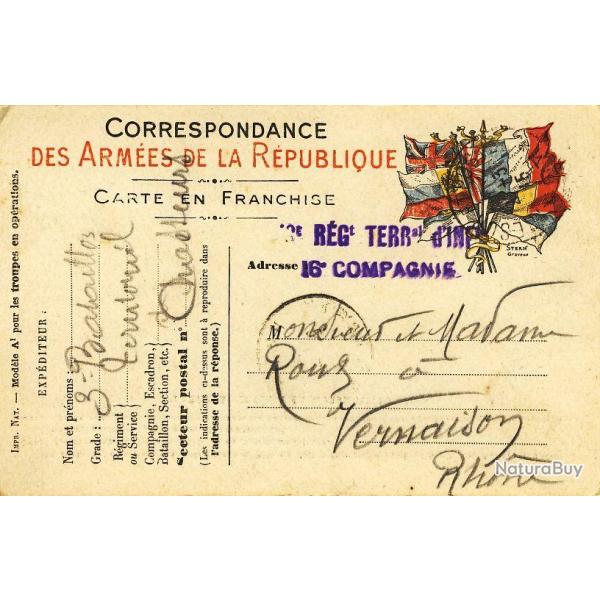 CORRESPONDANCE
DES ARMÉES DE LA RÉPUBLIQUE
CARTE EN FRANCHISE
RÉGt TERRal d'INF
Adresse 16e COMPAGNIE
Monsieur et Madame
Roux à
Vernaison
Rhône
STERN
Graveur
Impr. Nat. — Modèle A1 pour les troupes en opérations.
EXPÉDITEUR :
Nom et prénoms :
Grade :
Régiment
ou Service
Compagnie, Escadron,
Bataillon, Section, etc.
Secteur postal n°
(Les indications ci-dessus sont à reproduire dans
l'adresse de la réponse.)
3e Bataillon
Territorial
Chasseurs
NaturaBuy